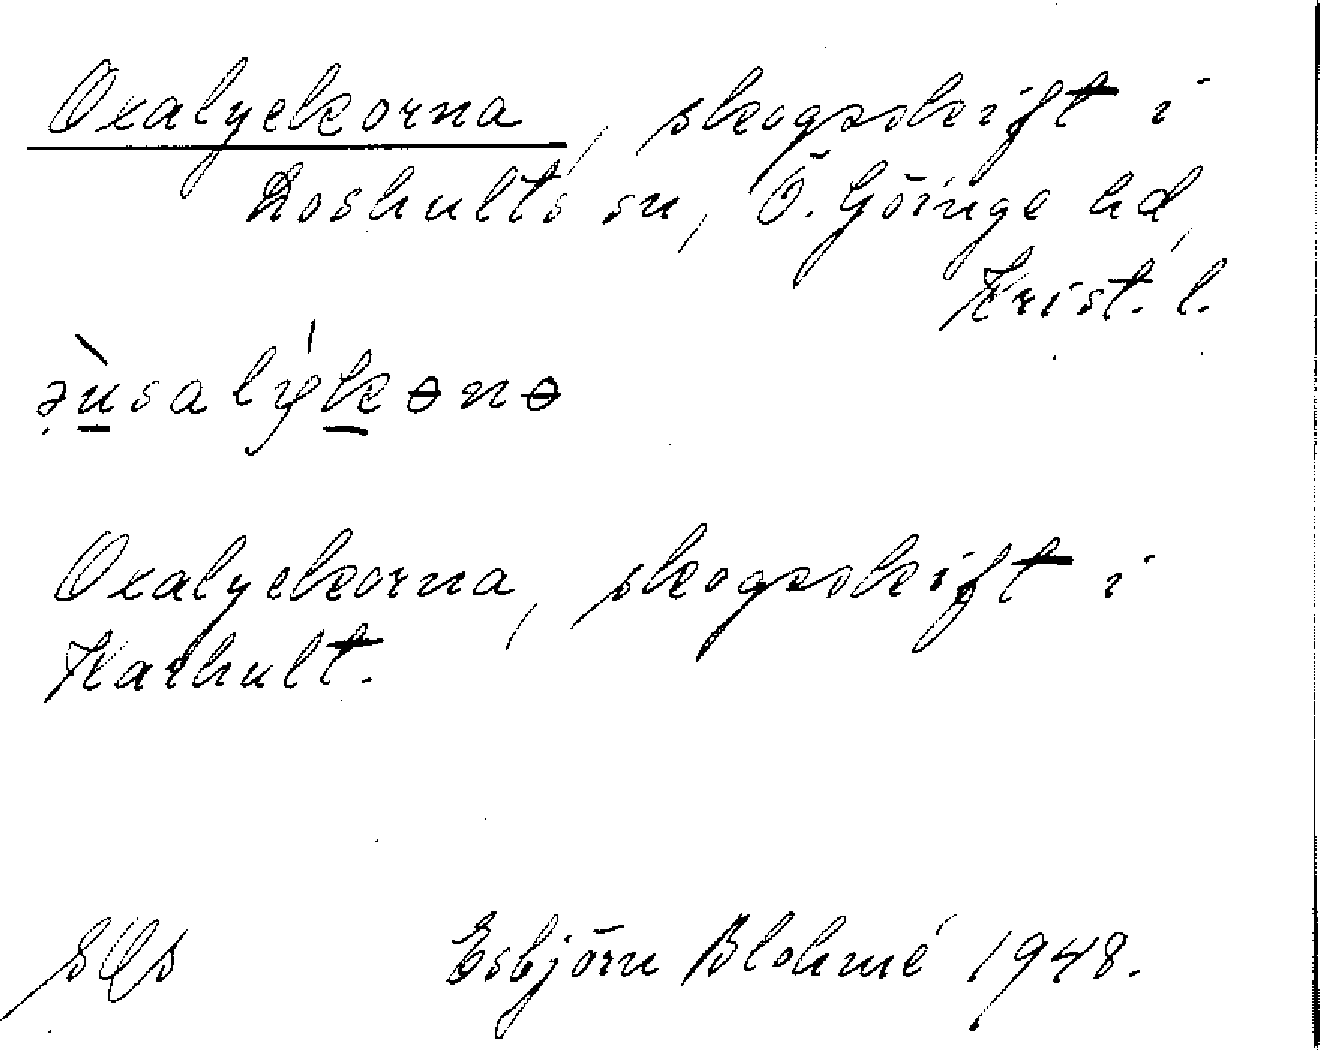 Oxalyckorna, skogsskift i
Loshults sn, Ö. Göinge hd,
Krist. l.
Oxalyckorna, skogsskift i
Karhult.
Esbjörn Blohmé 1948.